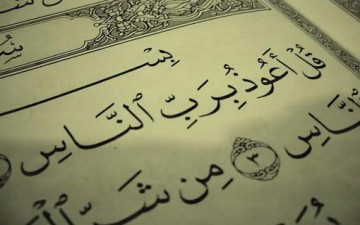 بِسْـ
قُلْ أَعُوذُ بِرَبِّ ٱلنَّاسِ
ٱلنَّاسِ ٣ مِن شَرِّ